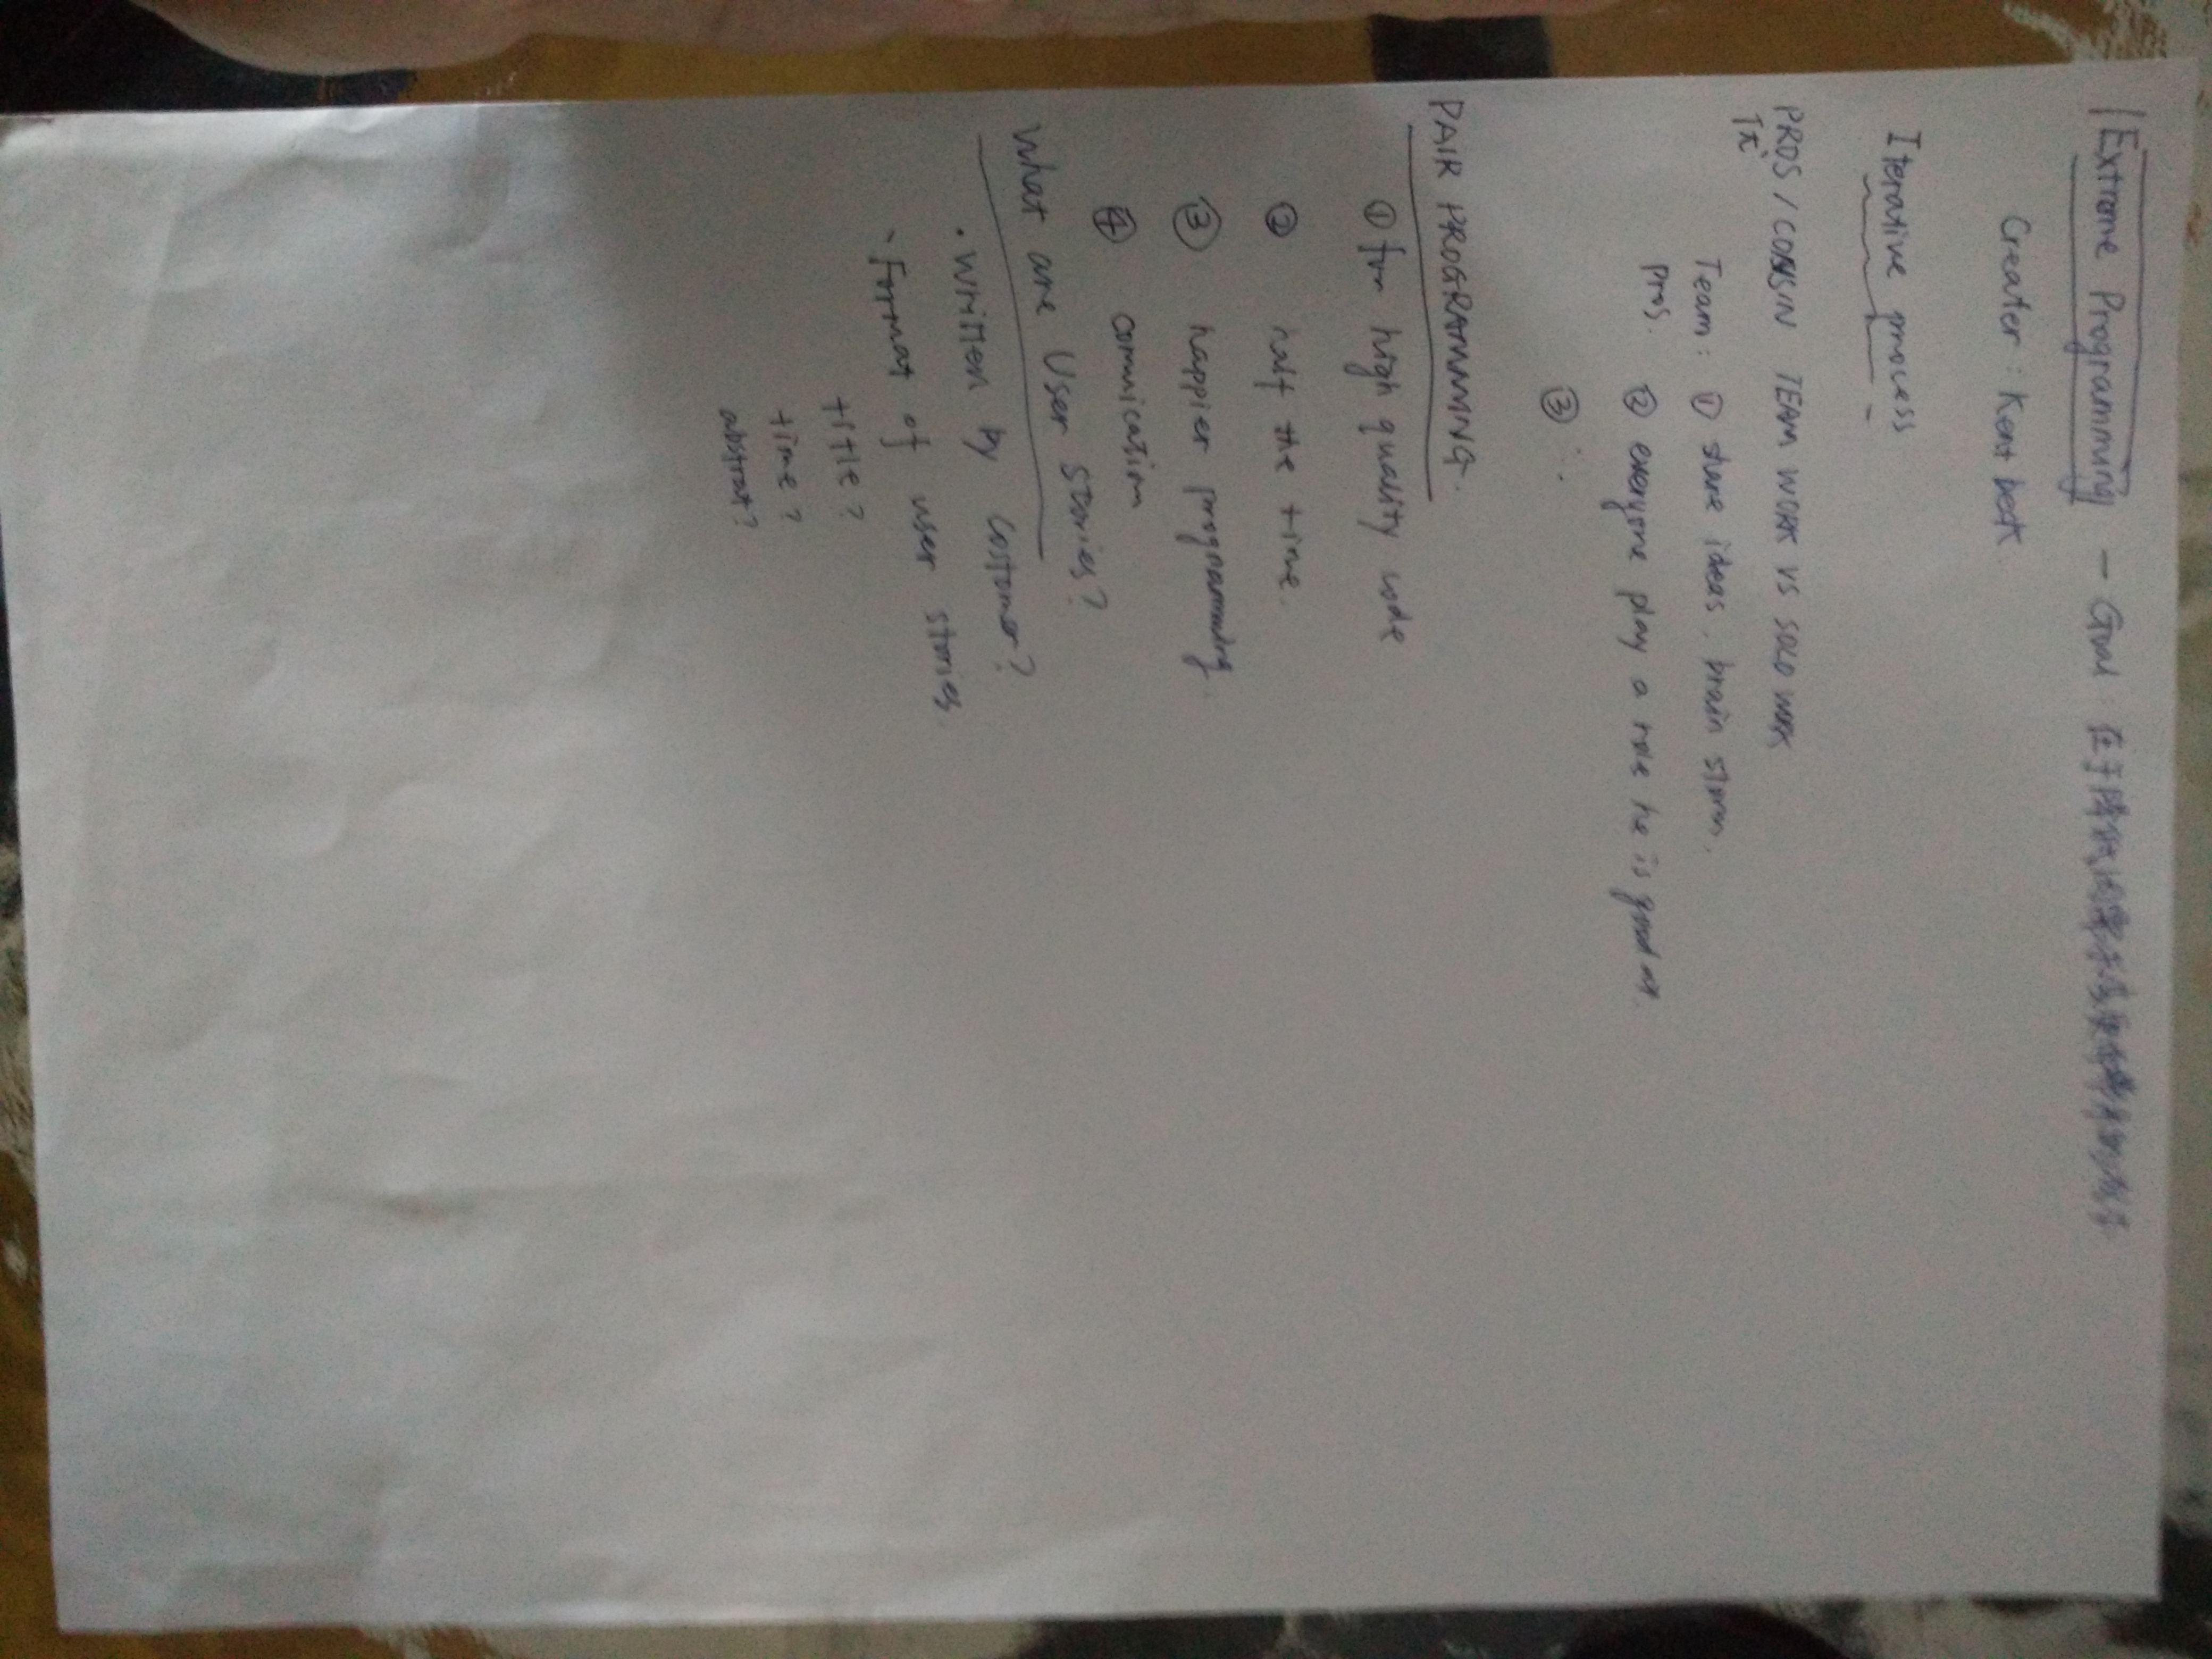 Extreme Programming - Goal: 在于降低因需求变更而带来的成本
Creater: Kent beck
Iterative process
PROS / CONS IN TEAM WORK VS SOLO WORK
Team: ① share ideas, brain storm.
pros. ② everyone play a role he is good at.
③ ...
PAIR PROGRAMMING.
① for high quality code
② half the time.
③ happier programming.
④ comunication
What are User stories?
· written by costomer?
· Format of user stories.
title?
time?
abstrat?